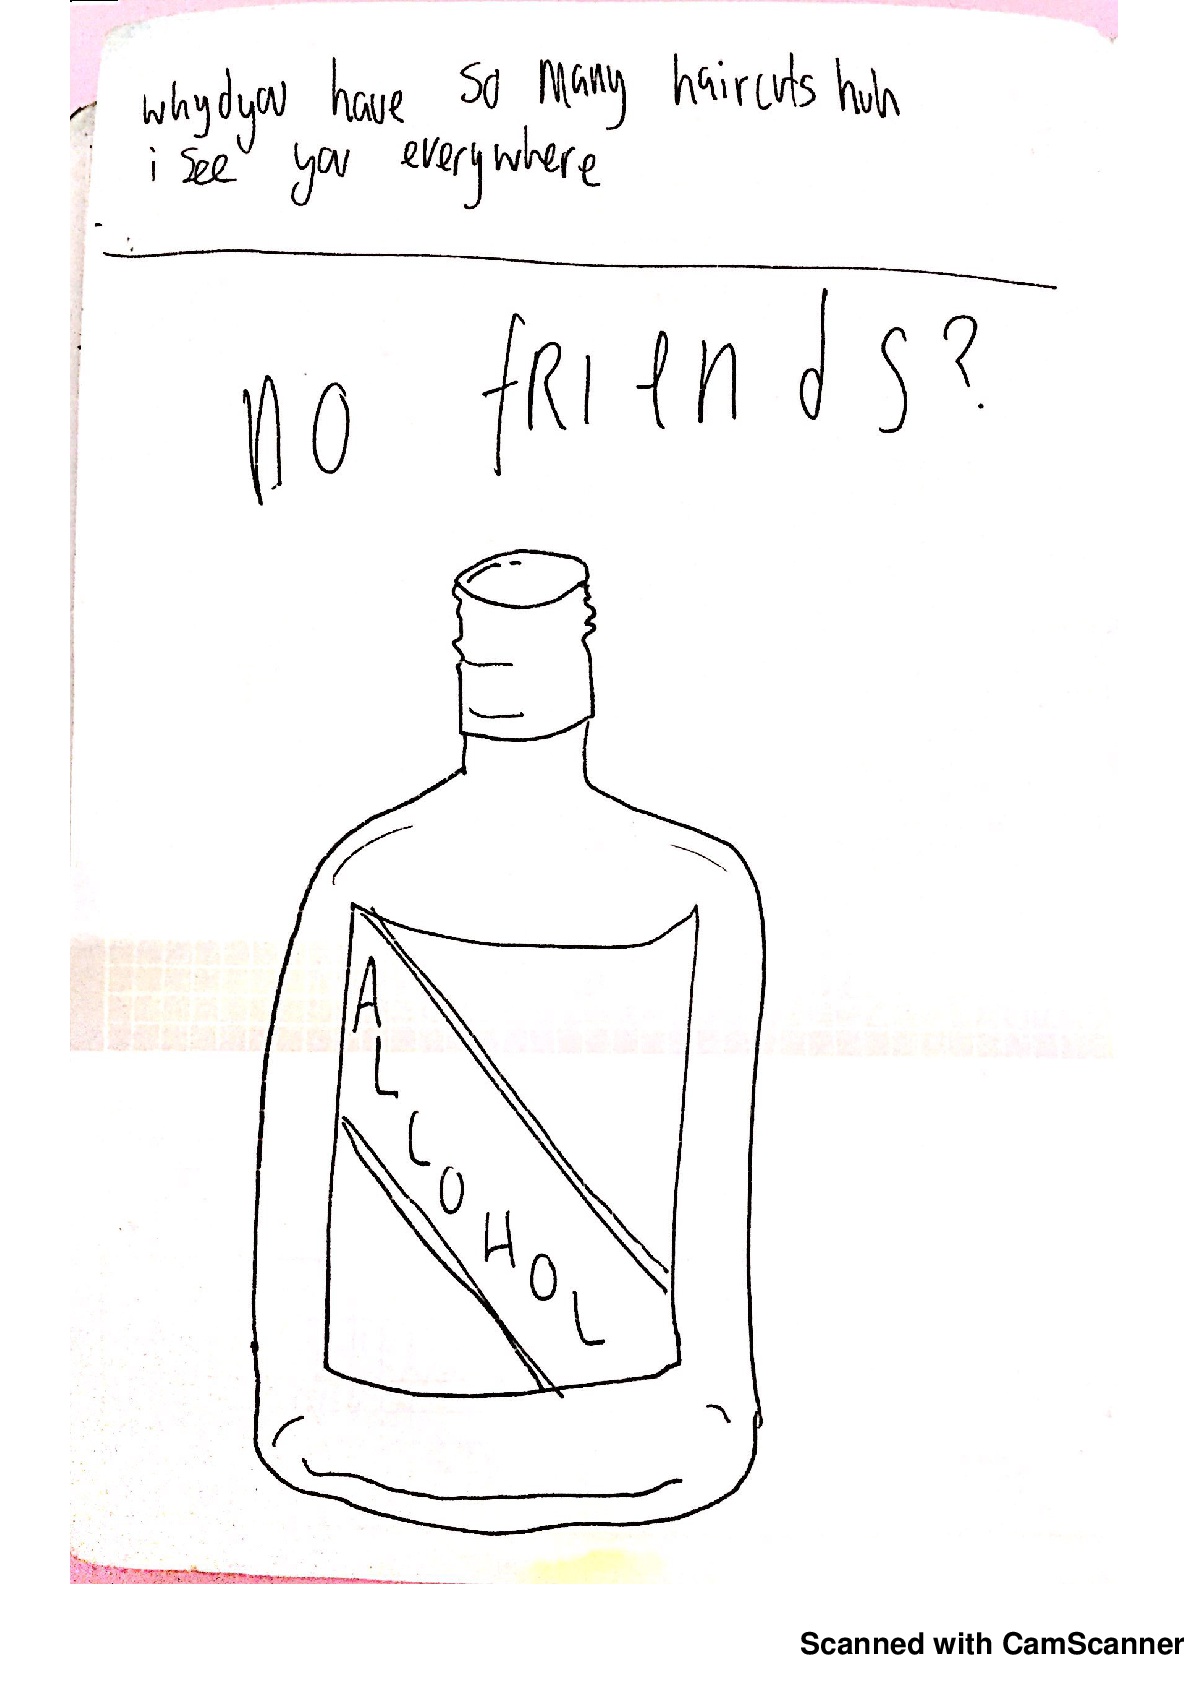 whydyou have so many haircuts huh
i see you everywhere
no fRIends?
ALCOHOL
Scanned with CamScanner